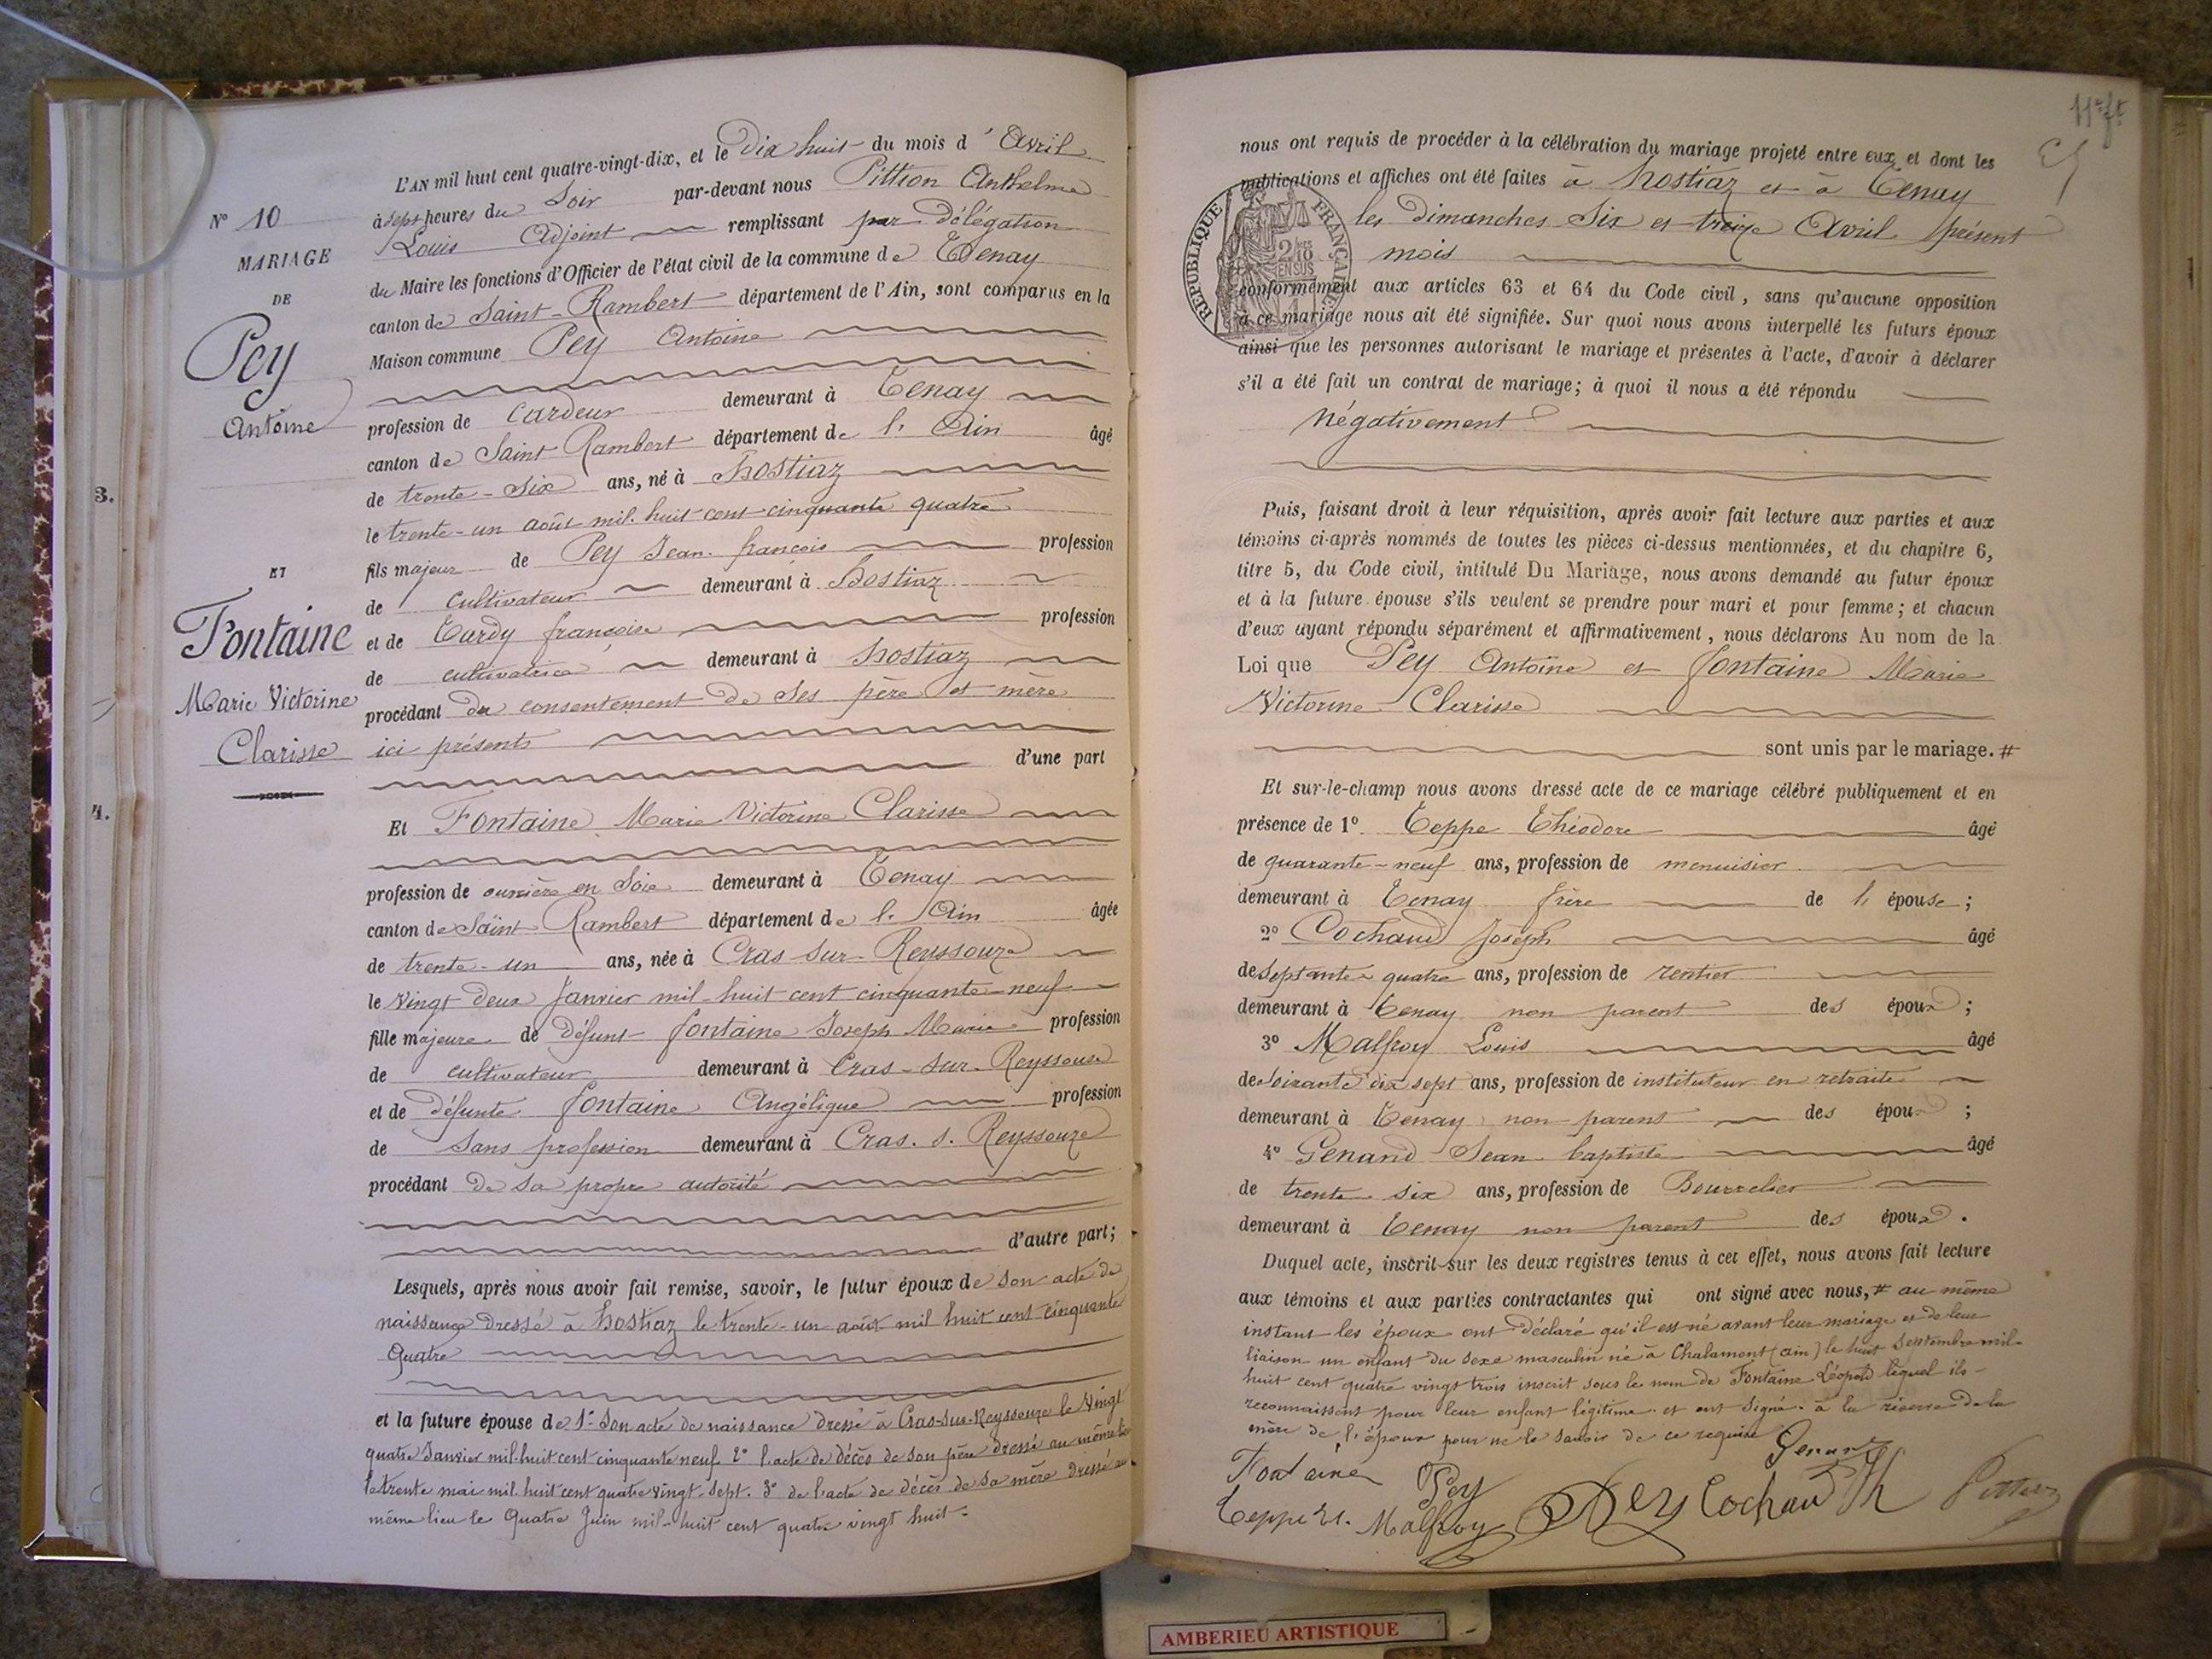 L'AN mil huit cent quatre-vingt-dix, et le Dix huit du mois d' Avril
à sept heures du Soir par-devant nous Pittion Anthelme
Louis Adjoint remplissant par Délégation
du Maire les fonctions d'Officier de l'état civil de la commune de Tenay
canton de Saint-Rambert département de l'Ain, sont comparus en la
Maison commune Pey Antoine
profession de Cardeur demeurant à Tenay
canton de Saint Rambert département de l'Ain âgé
de trente-six ans, né à hostiaz
le trente-un août mil huit cent cinquante quatre
fils majeur de Pey Jean-françois profession
de cultivateur demeurant à hostiaz
et de Tardy françoise profession
de cultivatrice demeurant à hostiaz
procédant du consentement de ses père et mère
ici présents
d'une part
Et Fontaine Marie Victorine Clarisse
profession de ouvrière en Soie demeurant à Tenay
canton de Saint Rambert département de l'Ain âgée
de trente-un ans, née à Cras sur-Reyssouze
le Vingt deux Janvier mil-huit cent cinquante-neuf
fille majeure de défunt fontaine Joseph Marie profession
de cultivateur demeurant à Cras-sur-Reyssouze
et de défunte fontaine Angélique profession
de Sans profession demeurant à Cras. s. Reyssouze
procédant de sa propre autorité
d'autre part;
Lesquels, après nous avoir fait remise, savoir, le futur époux de son acte de
naissance dressé à hostiaz le trente-un août mil huit cent cinquante
Quatre
et la future épouse de 1° Son acte de naissance dressé à Cras-sur-Reyssouze le Vingt
quatre Janvier mil-huit cent cinquante neuf 2° l'acte de décès de son père dressé au même lieu
le trente mai mil huit cent quatre vingt-sept. 3° de l'acte de décès de sa mère dressé au
même lieu le Quatre Juin mil-huit cent quatre vingt huit.
N° 10
MARIAGE
DE
Pey
Antoine
ET
Fontaine
Marie Victorine
Clarisse
3.
4.
11e ft
nous ont requis de procéder à la célébration du mariage projeté entre eux et dont les
publications et affiches ont été faites à hostiaz et à Tenay
les dimanches Six et treize Avril présent
mois
conformément aux articles 63 et 64 du Code civil, sans qu'aucune opposition
à ce mariage nous ait été signifiée. Sur quoi nous avons interpellé les futurs époux
ainsi que les personnes autorisant le mariage et présentes à l'acte, d'avoir à déclarer
s'il a été fait un contrat de mariage; à quoi il nous a été répondu
Négativement
RÉPUBLIQUE FRANÇAISE
2/10 EN SUS
Puis, faisant droit à leur réquisition, après avoir fait lecture aux parties et aux
témoins ci-après nommés de toutes les pièces ci-dessus mentionnées, et du chapitre 6,
titre 5, du Code civil, intitulé Du Mariage, nous avons demandé au futur époux
et à la future épouse s'ils veulent se prendre pour mari et pour femme; et chacun
d'eux ayant répondu séparément et affirmativement, nous déclarons Au nom de la
Loi que Pey Antoine et fontaine Marie
Victorine Clarisse
sont unis par le mariage. #
Et sur-le-champ nous avons dressé acte de ce mariage célébré publiquement et en
présence de 1° Teppe Théodore âgé
de quarante-neuf ans, profession de menuisier
demeurant à Tenay frère de l'épouse;
2° Cochaud Joseph âgé
de Septante quatre ans, profession de rentier
demeurant à Tenay non parent des époux;
3° Malfroy Louis âgé
de soixante dix sept ans, profession de instituteur en retraite
demeurant à Tenay non parent des époux;
4° Genand Jean-baptiste âgé
de trente six ans, profession de Bourrelier
demeurant à Tenay non parent des époux.
Duquel acte, inscrit sur les deux registres tenus à cet effet, nous avons fait lecture
aux témoins et aux parties contractantes qui ont signé avec nous, # au même
instant les époux ont déclaré qu'il est né avant leur mariage et de leur
liaison un enfant du sexe masculin né à Chalamont (ain) le huit Septembre mil-
huit cent quatre vingt trois inscrit sous le nom de Fontaine Léopold lequel ils
reconnaissent pour leur enfant légitime. et ont signé. à la réserve de la
mère de l'époux pour ne le savoir de ce requise
Fontaine Pey Genand
Teppe Malfroy Pey Cochaud Jh Pittion
AMBERIEU ARTISTIQUE